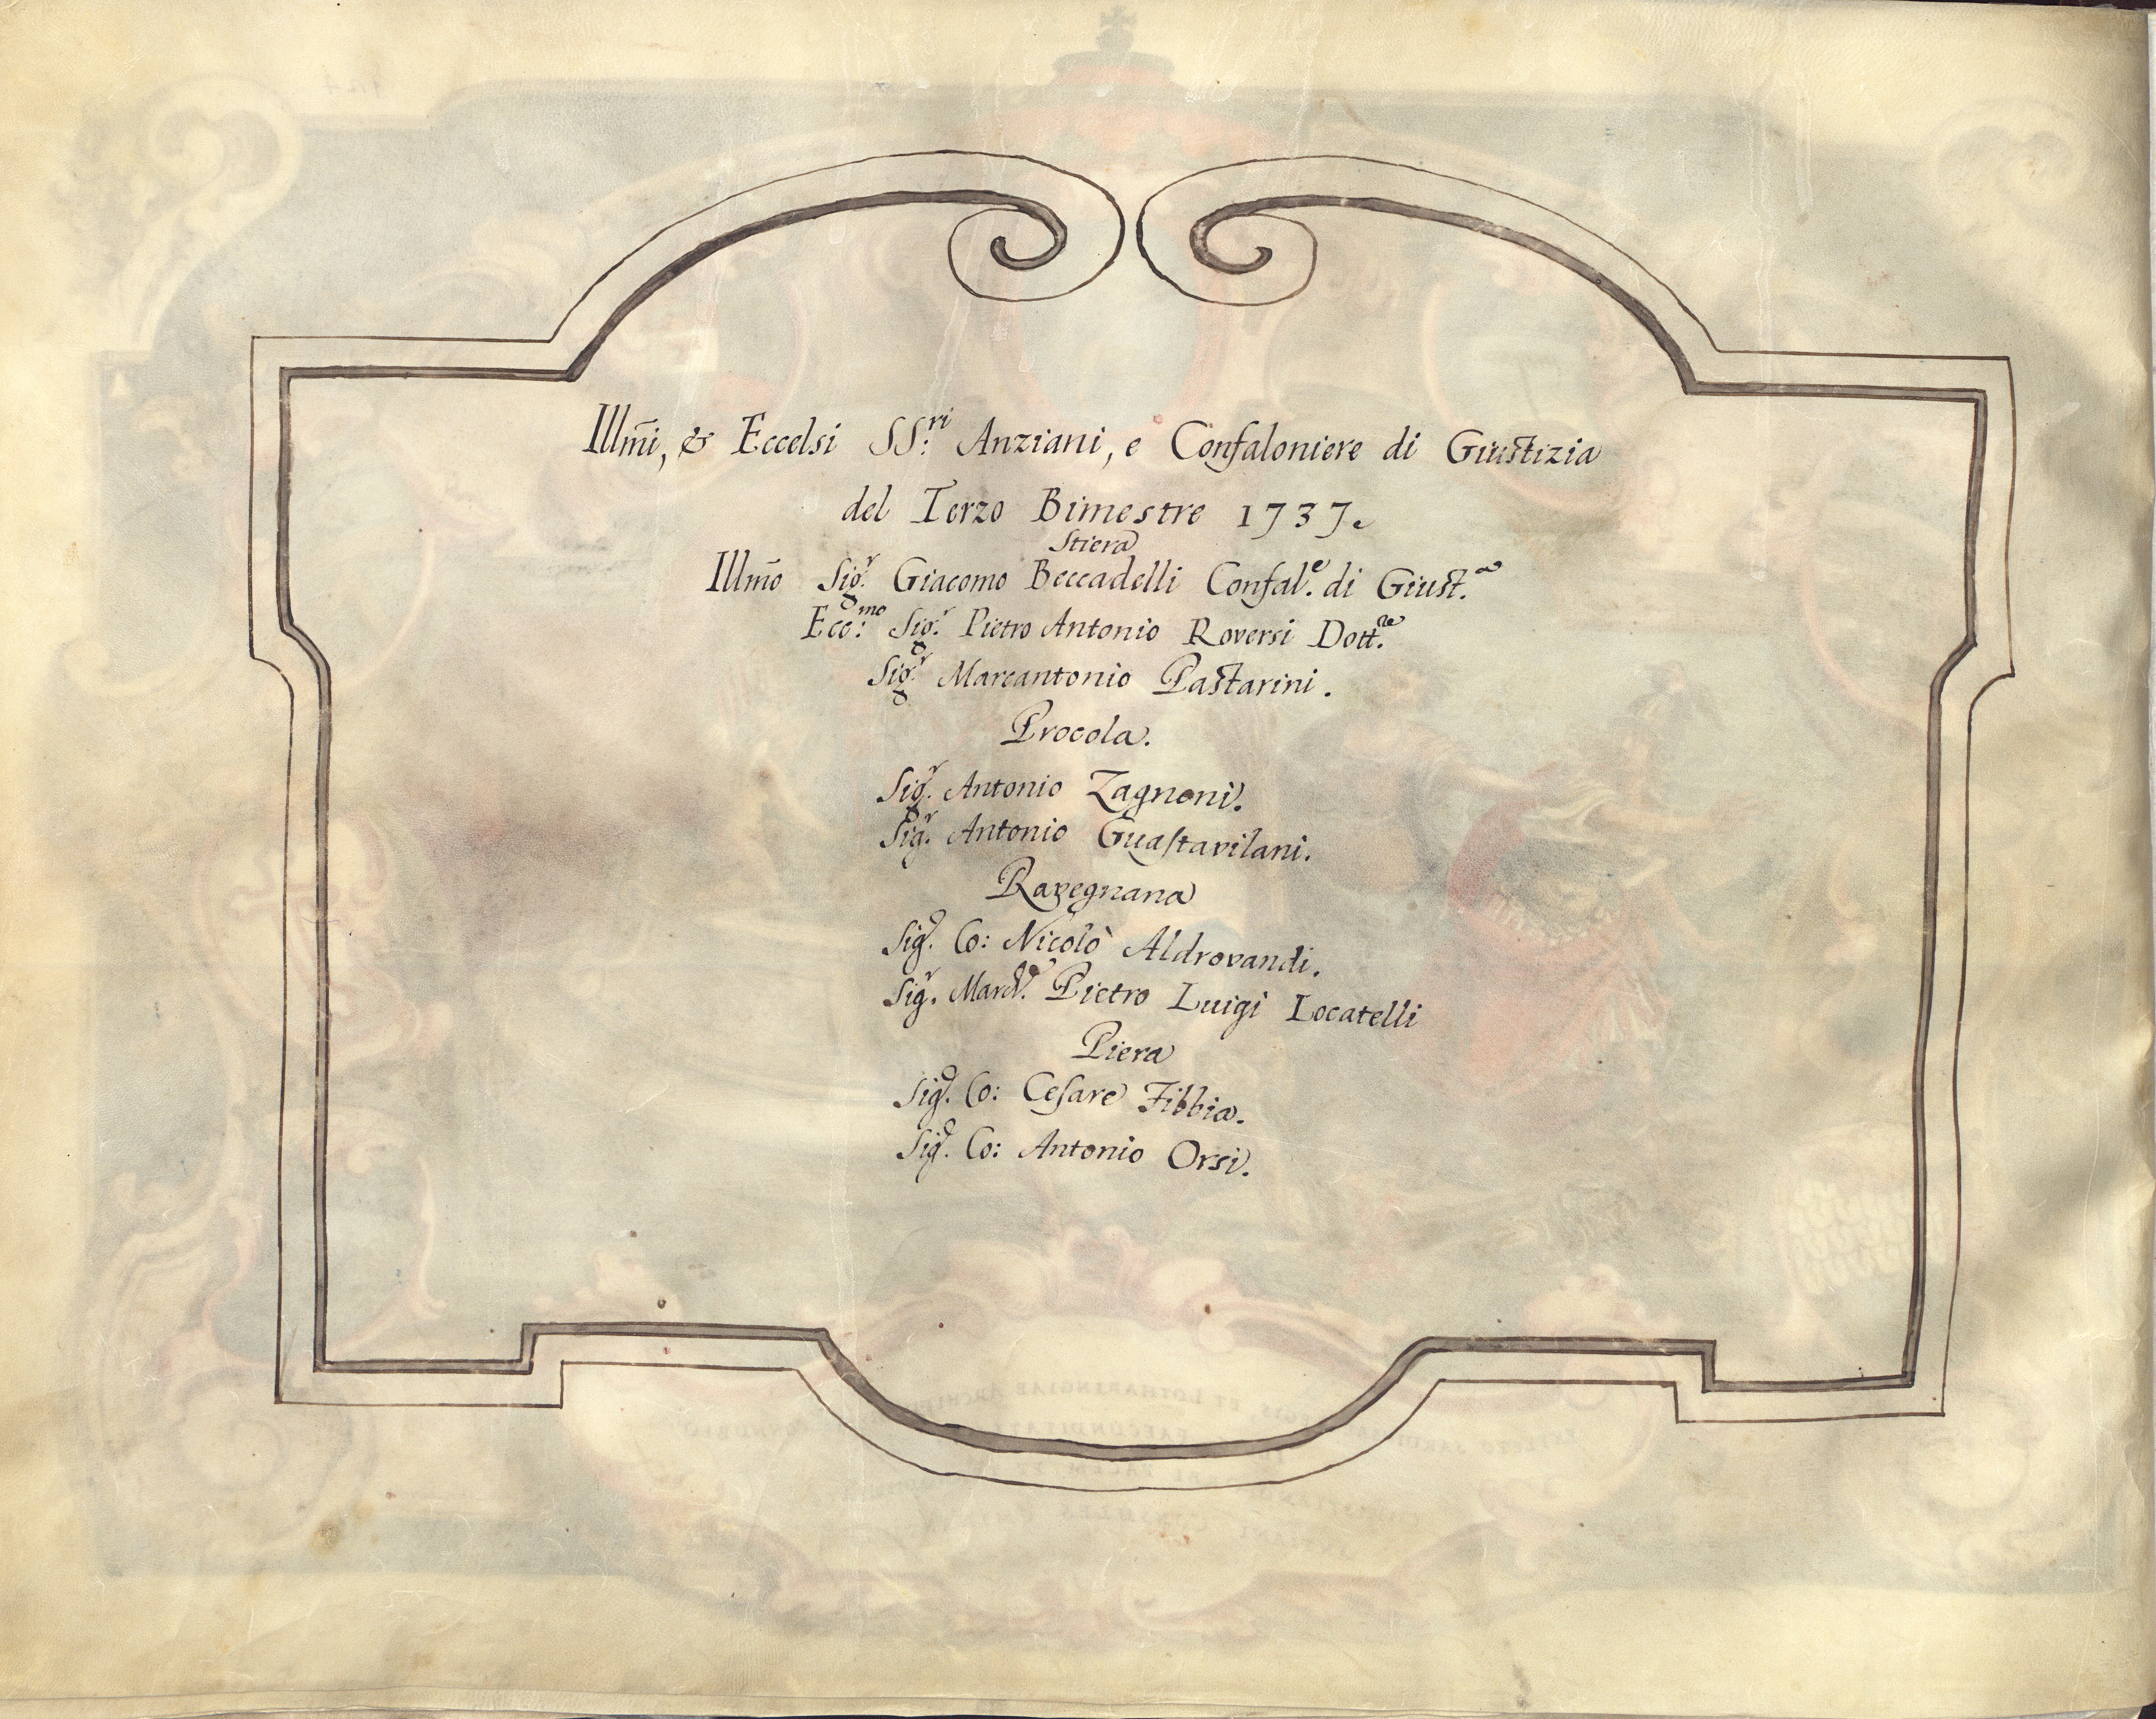 Illm̃i, & Eccelsi SS:ri Anziani, e Confaloniere di Giustizia
del Terzo Bimestre 1737.
Stiera
Illm̃o Sig.r Giacomo Beccadelli Confal.e di Giust.a
Ecc:mo Sig.r Pietro Antonio Roversi Dott.re
Sig.r Marcantonio Pastarini.
Procola.
Sig.r Antonio Zagnoni.
Sig.r Antonio Guastavilani.
Ravegnana
Sig.r Co: Nicolò Aldrovandi.
Sig.r March.e Pietro Luigi Locatelli
Piera
Sig.r Co: Cesare Fibbia.
Sig.r Co: Antonio Orsi.